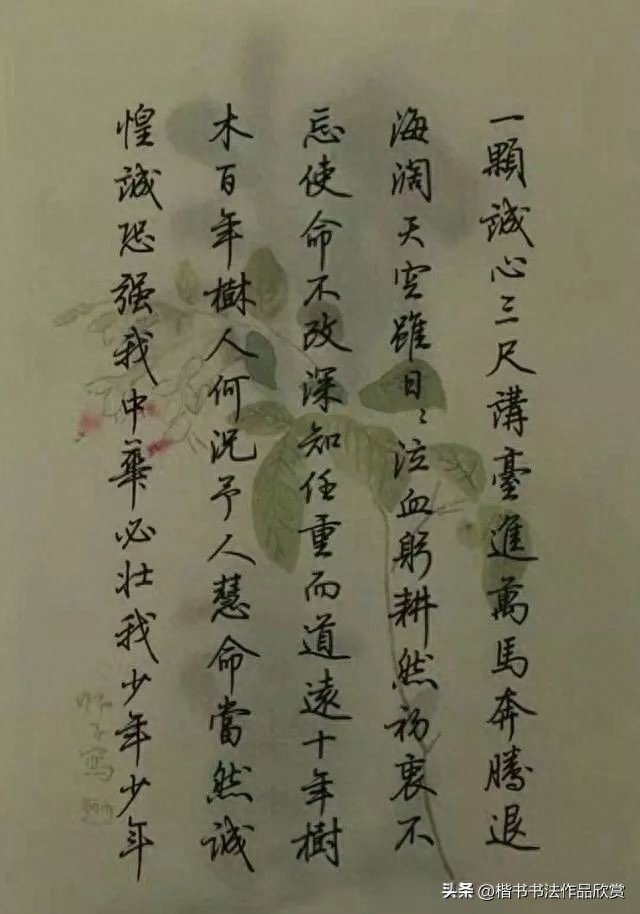 一顆誠心三尺講臺進萬馬奔騰退
海濶天空雖日〻泣血躬耕然初衷不
忘使命不改深知任重而道遠十年樹
木百年樹人何況予人慧命當然誠
惶誠恐强我中華必壯我少年少年
头条 @楷书书法作品欣赏